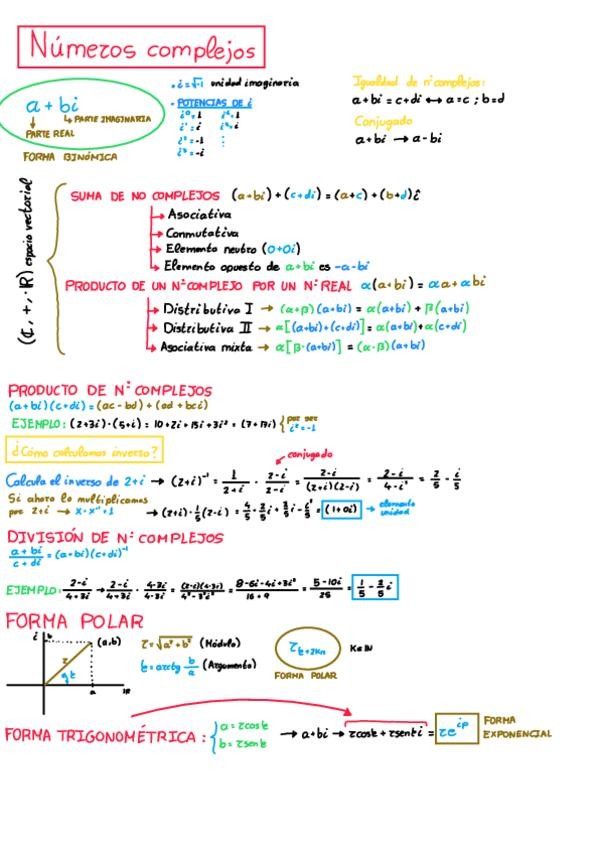 Números complejos
a + bi
PARTE IMAGINARIA
PARTE REAL
FORMA BINÓMICA
i = √-1 unidad imaginaria
POTENCIAS DE i
i⁰ = 1
i¹ = i
i² = -1
i³ = -i
i⁴ = 1
i⁵ = i
⋮
Igualdad de nº complejos:
a + bi = c + di ↔ a = c ; b = d
Conjugado
a + bi → a - bi
(ℂ, +, ·ℝ) espacio vectorial
SUMA DE NO COMPLEJOS (a + bi) + (c + di) = (a + c) + (b + d)i
Asociativa
Conmutativa
Elemento neutro (0 + 0i)
Elemento opuesto de a + bi es -a - bi
PRODUCTO DE UN Nº COMPLEJO POR UN Nº REAL α(a + bi) = αa + αbi
Distributiva I → (α + β)(a + bi) = α(a + bi) + β(a + bi)
Distributiva II → α[(a + bi) + (c + di)] = α(a + bi) + α(c + di)
Asociativa mixta → α[β·(a + bi)] = (α·β)(a + bi)
PRODUCTO DE Nº COMPLEJOS
(a + bi)(c + di) = (ac - bd) + (ad + bci)
EJEMPLO: (2 + 3i)·(5 + i) = 10 + 2i + 15i + 3i² = (7 + 17i) { por ser i² = -1
¿Cómo calculamos inverso?
conjugado
Calcula el inverso de 2 + i → (2 + i)⁻¹ = 1/(2 + i) · (2 - i)/(2 - i) = (2 - i)/((2 + i)(2 - i)) = (2 - i)/(4 - i²) = 2/5 - i/5
Si ahora lo multiplicamos
por 2 + i → x · x⁻¹ = 1 → (2 + i)·1/5(2 - i) = 4/5 - 2/5 i + 2/5 i - i²/5 = (1 + 0i) → elemento unidad
DIVISIÓN DE Nº COMPLEJOS
(a + bi)/(c + di) = (a + bi)(c + di)⁻¹
EJEMPLO: (2 - i)/(4 + 3i) → (2 - i)/(4 + 3i) · (4 - 3i)/(4 - 3i) = ((2 - i)(4 - 3i))/(4² - 3²i²) = (8 - 6i - 4i + 3i²)/(16 + 9) = (5 - 10i)/25 = 1/5 - 2/5 i
FORMA POLAR
i
b
(a, b)
r
t
a
ℝ
r = √(a² + b²) (Módulo)
t = arctg b/a (Argumento)
r t + 2Kπ
K ∈ ℕ
FORMA POLAR
FORMA TRIGONOMÉTRICA : { a = r cos t
b = r sen t
→ a + bi → r cos t + r sen t i = r e^iρ
FORMA EXPONENCIAL